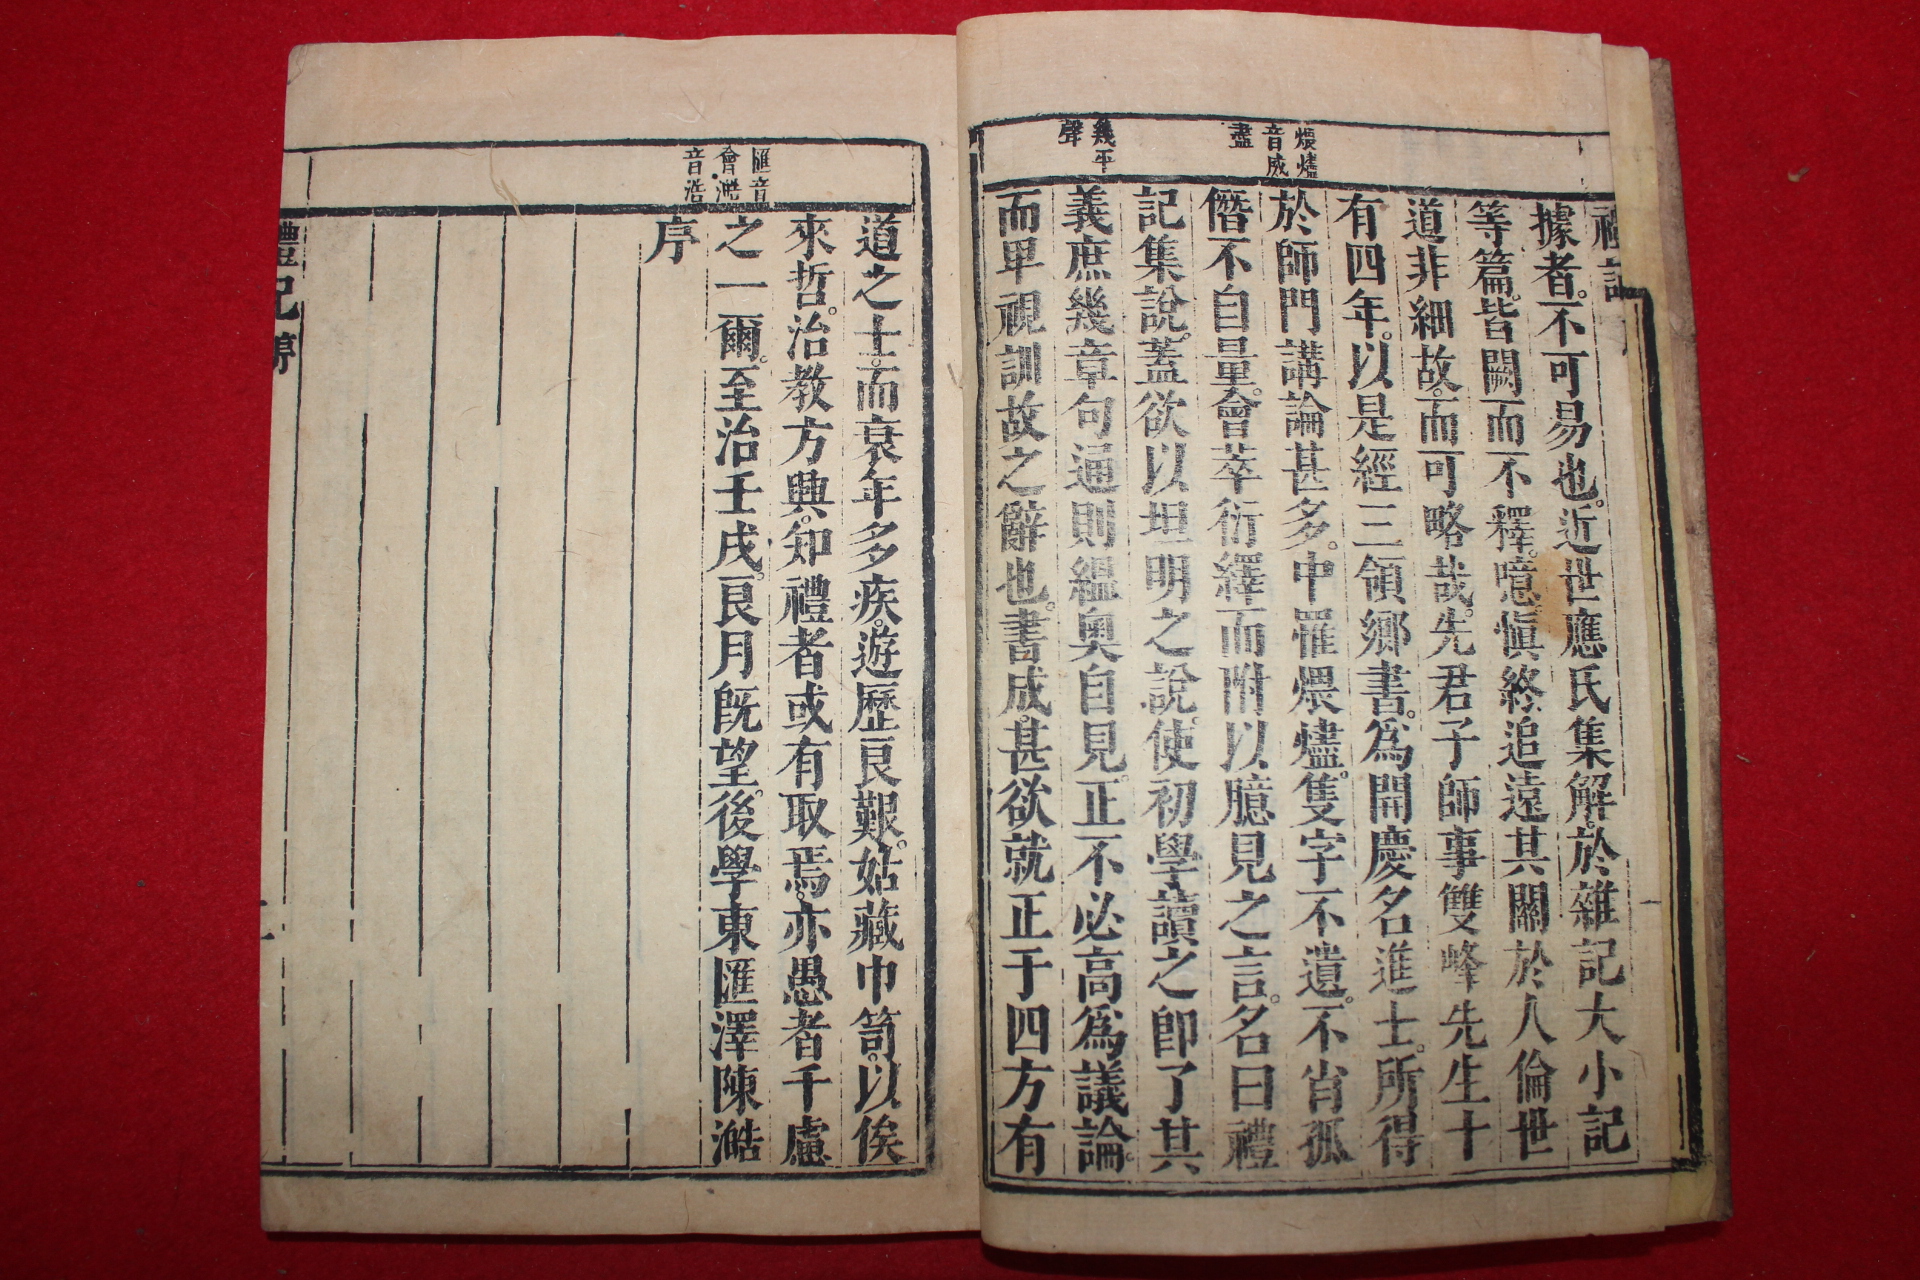 煨燼
音威
盡
幾平
聲
禮記
據者。不可易也。近世應氏集解。於雜記大小記
等篇。皆闕而不釋。噫。愼終追遠。其關於人倫世
道非細故。而可略哉。先君子師事雙峰先生十
有四年。以是經三領鄕書。爲開慶名進士。所得
於師門講論甚多。中罹煨燼。隻字不遺。不肖孤
僭不自量。會萃衍繹而附以臆見之言。名曰禮
記集說。蓋欲以坦明之說。使初學讀之卽了其
義。庶幾章句通則縕奥自見。正不必高爲議論。
而𤰞視訓故之辭也。書成。甚欲就正于四方有
匯音
會澔
音浩
道之士。而衰年多疾。遊歷良艱。姑藏巾笥。以俟
來哲。治教方興。知禮者或有取焉。亦愚者千慮
之一爾。至治壬戌。良月旣望。後學東匯澤陳澔
序
禮記序